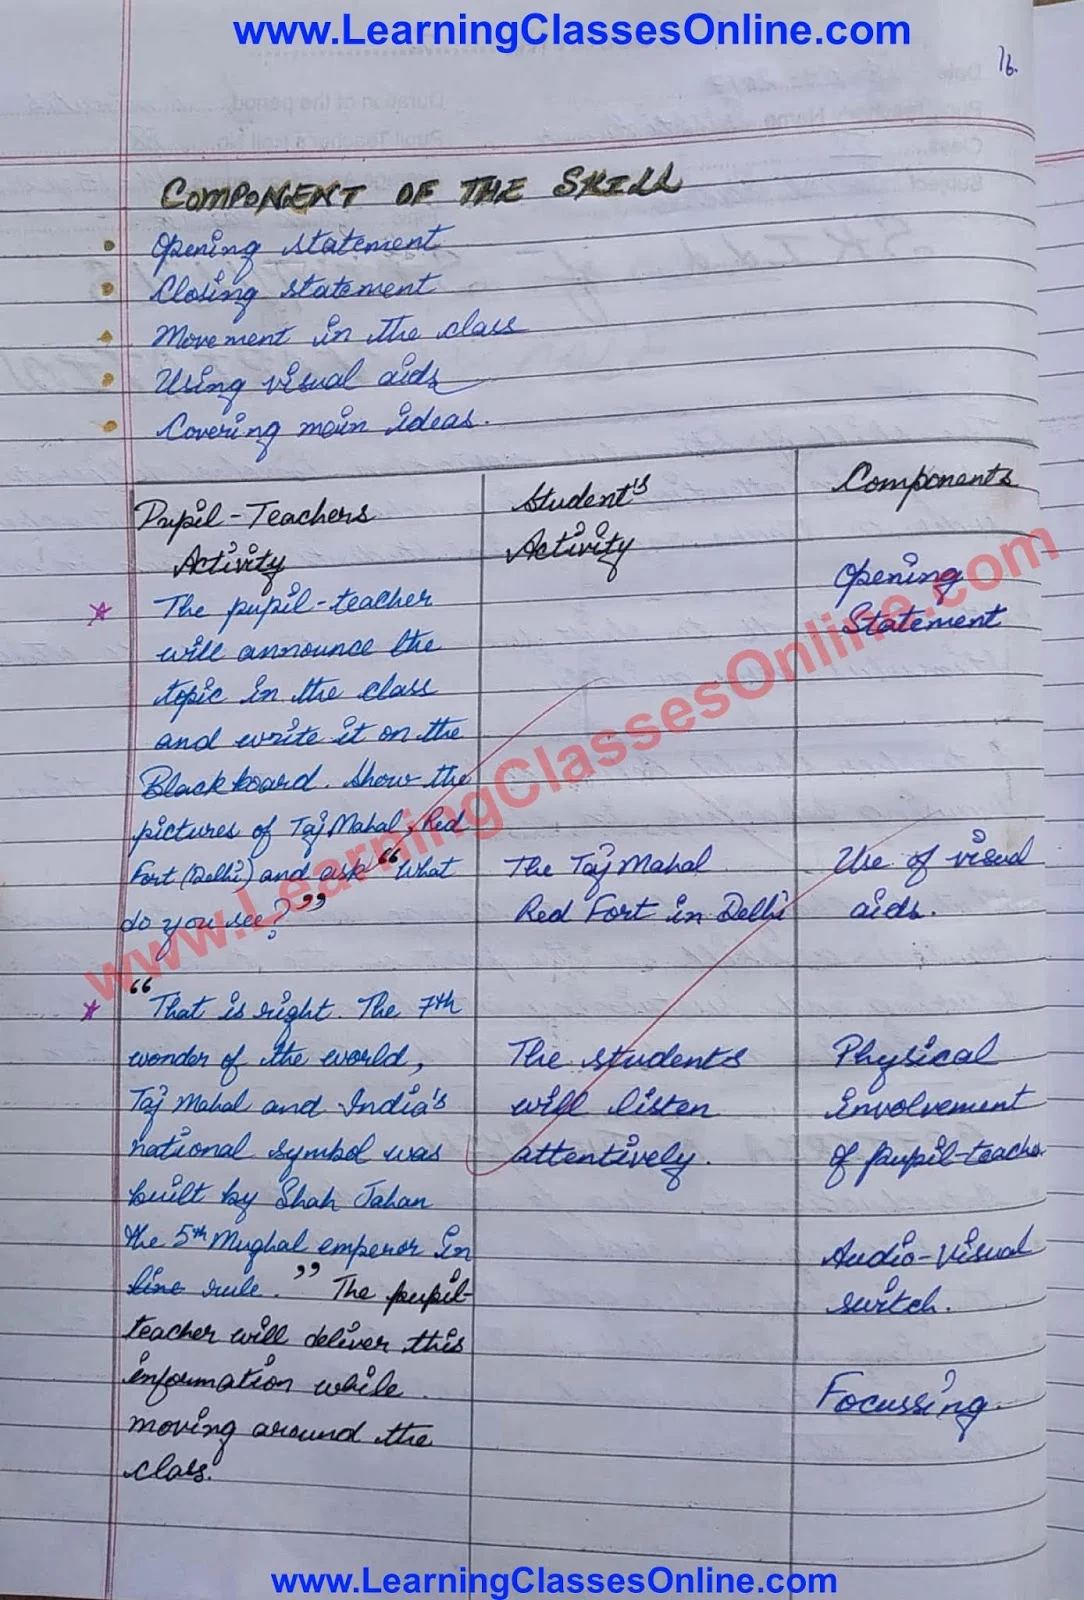 www.LearningClassesOnline.com
16.
COMPONENT OF THE SKILL
Opening statement
Closing statement
Movement in the class
Using visual aids
Covering main ideas.
Pupil-Teachers
Activity
The pupil-teacher
will announce the
topic in the class
and write it on the
Blackboard. Show the
pictures of Taj Mahal, Red
Fort (Delhi) and ask "What
do you see?"
"That is right. The 7th
wonder of the world,
Taj Mahal and India's
national symbol was
built by Shah Jahan
the 5th Mughal emperor in
line rule." The pupil-
teacher will deliver this
information while
moving around the
class.
Student's
Activity
The Taj Mahal
Red Fort in Delhi
The students
will listen
attentively.
Components
Opening
Statement
Use of visual
aids.
Physical
involvement
of pupil-teacher
Audio-visual
switch.
Focussing.
www.LearningClassesOnline.com
www.LearningClassesOnline.com